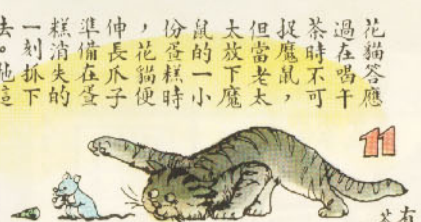 花貓答應
過在喝午
茶時不可
捉魔鼠，
但當老太
太放下魔
鼠的一小
份蛋糕時
，花貓便
伸長爪子
準備在蛋
糕消失的
一刻抓下
去。牠這
11
有